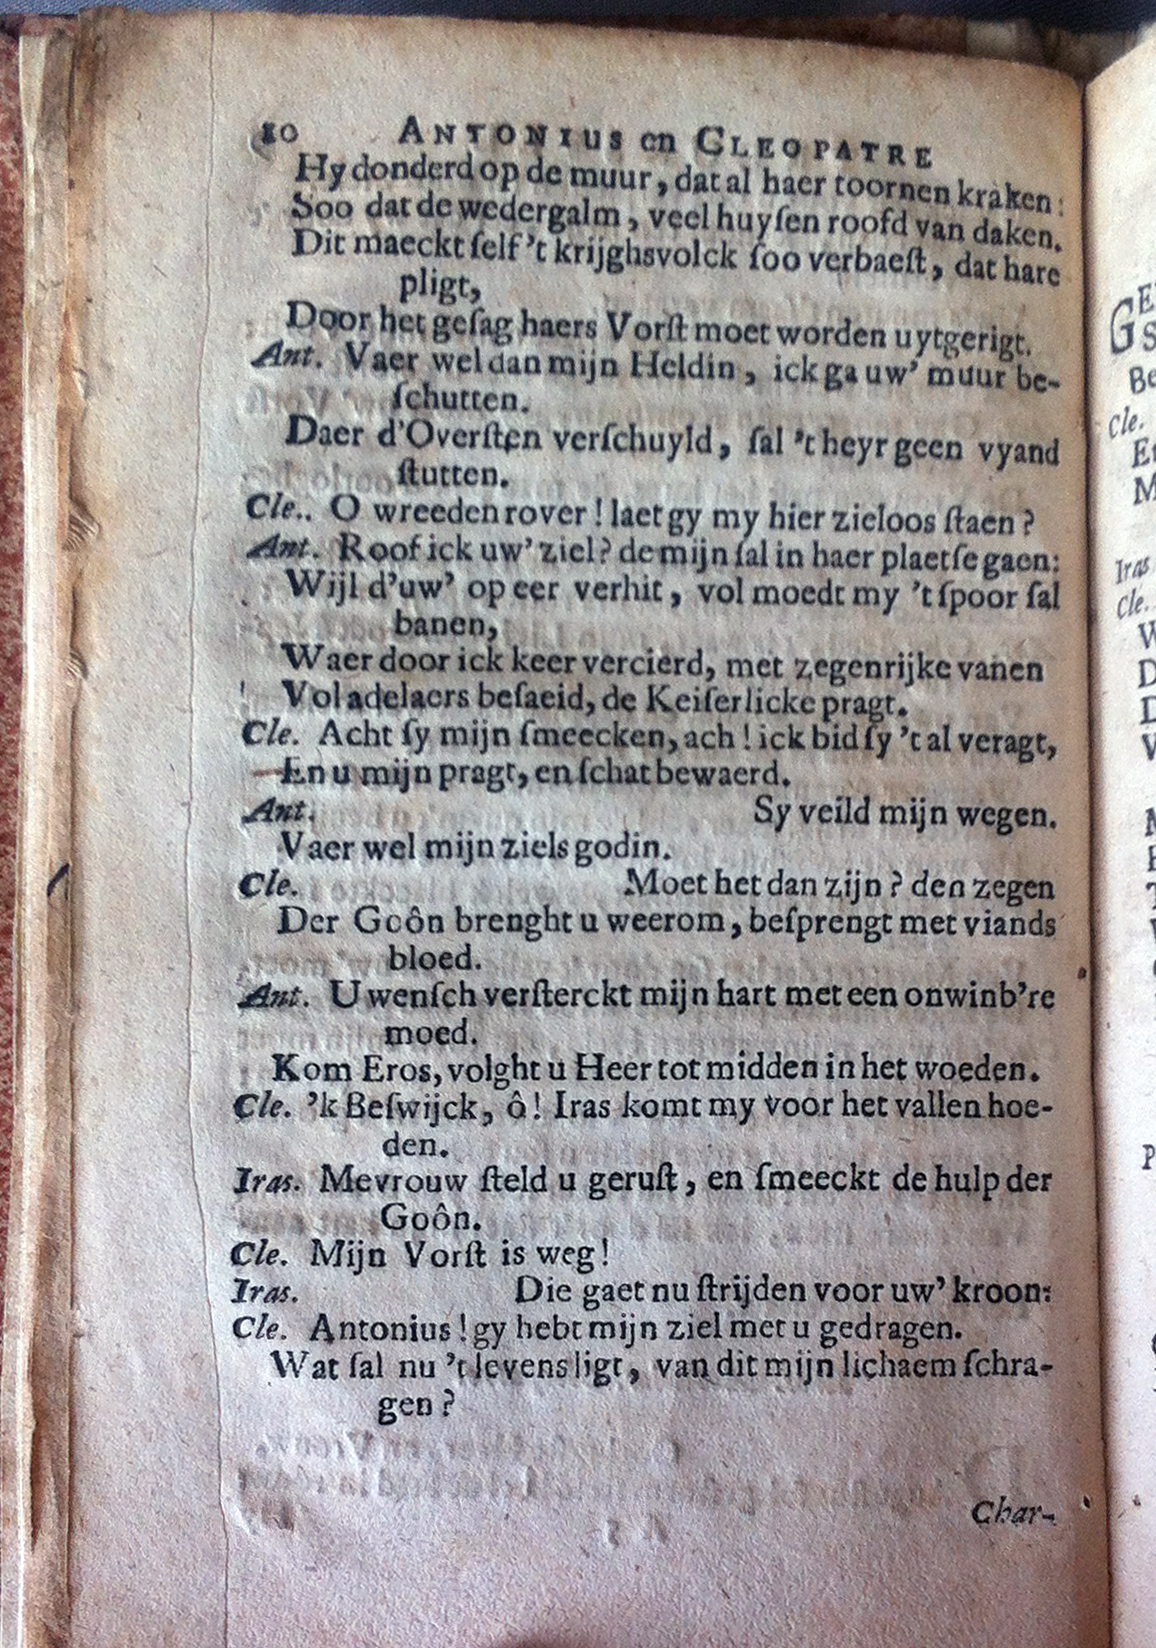 10 ANTONIUS en CLEOPATRE
Hy donderd op de muur, dat al haer toornen kraken:
Soo dat de wedergalm, veel huyſen roofd van daken.
Dit maeckt ſelf 't krijghsvolck ſoo verbaeſt, dat hare
pligt,
Door het geſag haers Vorſt moet worden uytgerigt.
Ant. Vaer wel dan mijn Heldin, ick ga uw' muur be-
ſchutten.
Daer d'Overſten verſchuyld, ſal 't heyr geen vyand
ſtutten.
Cle.. O wreeden rover! laet gy my hier zieloos ſtaen?
Ant. Roof ick uw' ziel? de mijn ſal in haer plaetſe gaen:
Wijl d'uw' op eer verhit, vol moedt my 't ſpoor ſal
banen,
Waer door ick keer vercierd, met zegenrijke vanen
Vol adelaers beſaeid, de Keiſerlicke pragt.
Cle. Acht ſy mijn ſmeecken, ach! ick bid ſy 't al veragt,
En u mijn pragt, en ſchat bewaerd.
Ant. Sy veild mijn wegen.
Vaer wel mijn ziels godin.
Cle. Moet het dan zijn? den zegen
Der Goôn brenght u weerom, beſprengt met viands
bloed.
Ant. U wenſch verſterckt mijn hart met een onwinb're
moed.
Kom Eros, volght u Heer tot midden in het woeden.
Cle. 'k Beſwijck, ô! Iras komt my voor het vallen hoe-
den.
Iras. Mevrouw ſteld u geruſt, en ſmeeckt de hulp der
Goôn.
Cle. Mijn Vorſt is weg!
Iras. Die gaet nu ſtrijden voor uw' kroon:
Cle. Antonius! gy hebt mijn ziel met u gedragen.
Wat ſal nu 't levens ligt, van dit mijn lichaem ſchra-
gen?
Char-
Be
Cle.
M
Iras
Cle.